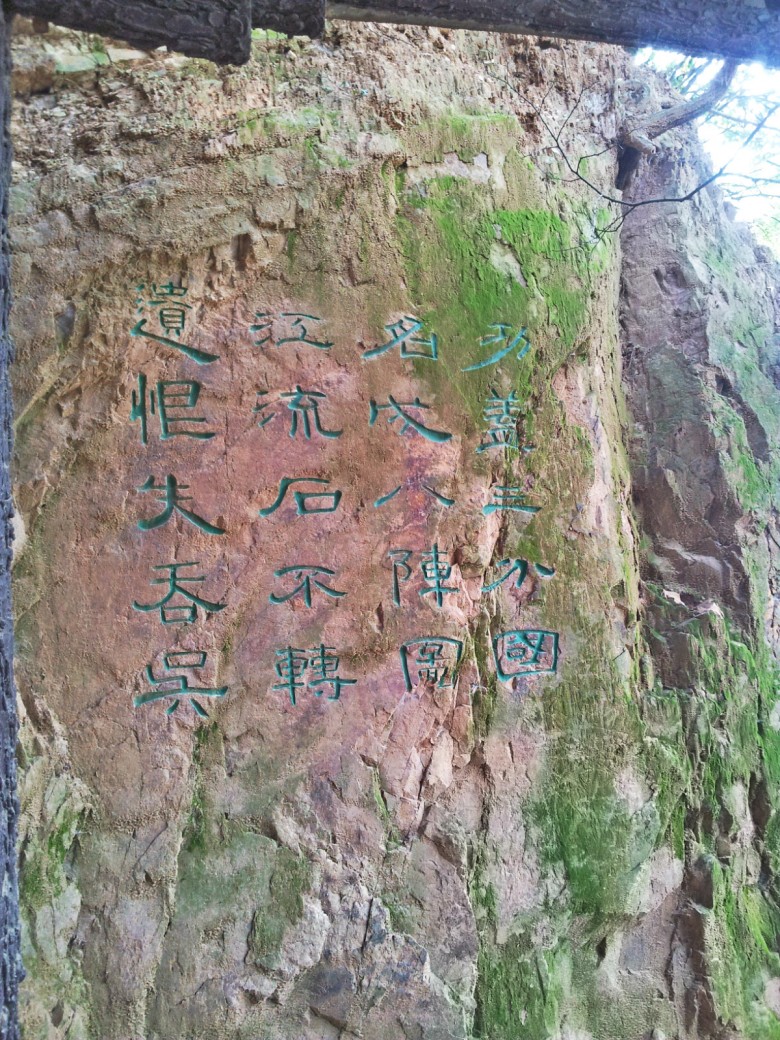 功蓋三分國
名成八陣圖
江流石不轉
遺恨失吞吳